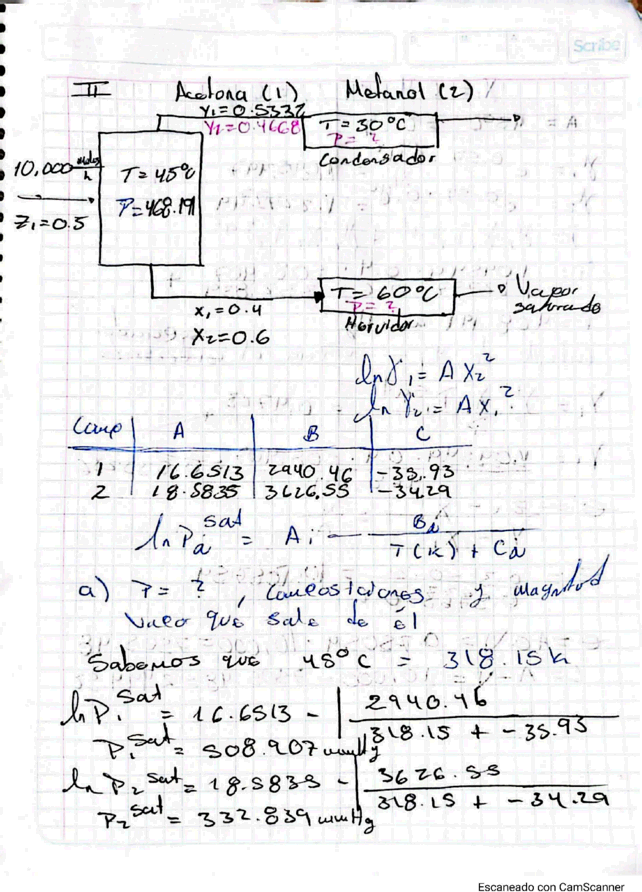 Scribe
II Acetona (1) Metanol (2)
y1=0.5332
y2=0.4668
T=30°C
P=?
Condensador
10,000 moles/h
T=45°C
P=468.191
Z1=0.5
T=60°C
P=?
Hervidor
Vapor
saturado
x1=0.4
x2=0.6
ln γ1 = A x2²
ln γ2 = A x1²
Comp A B C
1 16.6513 2940.46 -35.93
2 18.5835 3626.55 -34.29
ln Pi sat = Ai - Bi / T(k) + Ci
a) P=?, composiciones y magnitud
vapor que sale de él
Sabemos que 45°C = 318.15k
ln P1 sat = 16.6513 - | 2940.46 / 318.15 + -35.93
P1 sat = 508.907 mmHg
ln P2 sat = 18.5835 - | 3626.55 / 318.15 + -34.29
P2 sat = 332.839 mmHg
Escaneado con CamScanner